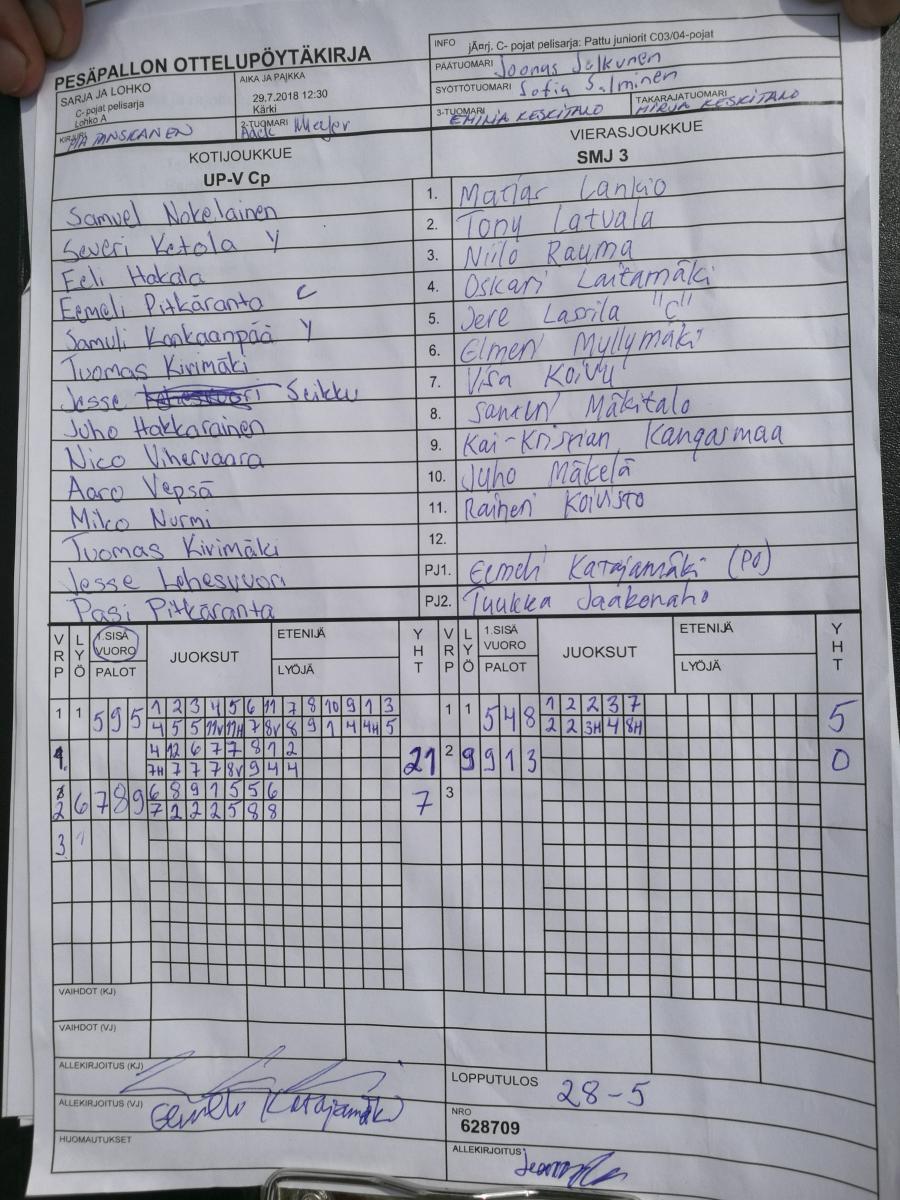 PESÄPALLON OTTELUPÖYTÄKIRJA
INFO jÄ¤rj. C- pojat pelisarja: Pattu juniorit C03/04-pojat
PÄÄTUOMARI Joonas Jalkunen
SYÖTTÖTUOMARI Sofia Salminen
3-TUOMARI EMILIA KESKITALO TAKARAJATUOMARI MIRJA KESKITALO
SARJA JA LOHKO
C- pojat pelisarja
Lohko A
AIKA JA PAIKKA
29.7.2018 12:30
Kärki
KIRJURI PIA TANSKANEN
2-TUOMARI
KOTIJOUKKUE VIERASJOUKKUE
UP-V Cp SMJ 3
Samuel Nokelainen 1. Matias Lankio
Severi Ketola Y 2. Tony Latvala
Eeli Hakala 3. Niilo Rauma
Eemeli Pitkäranta C 4. Oskari Laitamäki
Samuli Kankaanpää Y 5. Jere Lassila "C"
Tuomas Kivimäki 6. Elmeri Myllymäki
Jesse Seikku 7. Visa Koivu
Juho Hakkarainen 8. Santeri Mäkitalo
Nico Vihervaara 9. Kai-Kristian Kangasmaa
Aaro Vepsä 10. Juho Mäkelä
Miko Nurmi 11. Raineri Koivisto
Tuomas Kivimäki 12.
Jesse Lehesvuori PJ1. Eemeli Katajamäki (PO)
Pasi Pitkäranta PJ2. Tuukka Jaakonaho
VRP LYÖ 1.SISÄ VUORO PALOT JUOKSUT ETENIJÄ LYÖJÄ YHT VRP LYÖ 1.SISÄ VUORO PALOT JUOKSUT ETENIJÄ LYÖJÄ YHT
1 1 5 9 5 1 2 3 4 5 6 11 7 8 10 9 1 3 1 1 5 4 8 1 2 2 3 7 5
4 5 5 11V 11H 7 8V 8 9 1 4 4H 5 2 2 3H 4 8H
4 12 6 7 7 8 1 2 21 2 9 9 1 3 0
7H 7 7 7 8V 9 4 4
2 6 7 8 9 6 8 9 1 5 5 6 7 3
7 2 2 2 5 8 8
3
VAIHDOT (KJ)
VAIHDOT (VJ)
ALLEKIRJOITUS (KJ)
LOPPUTULOS 28-5
ALLEKIRJOITUS (VJ) (Katajamäki)
NRO
628709
HUOMAUTUKSET
ALLEKIRJOITUS